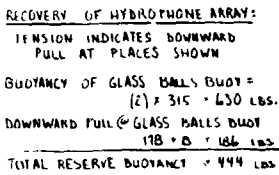 RECOVERY OF HYDROPHONE ARRAY:
TENSION INDICATES DOWNWARD
PULL AT PLACES SHOWN
BUOYANCY OF GLASS BALLS BUOY =
(2) × 315 = 630 LBS.
DOWNWARD PULL @ GLASS BALLS BUOY
178 + 8 = 186 LBS
TOTAL RESERVE BUOYANCY = 444 LBS